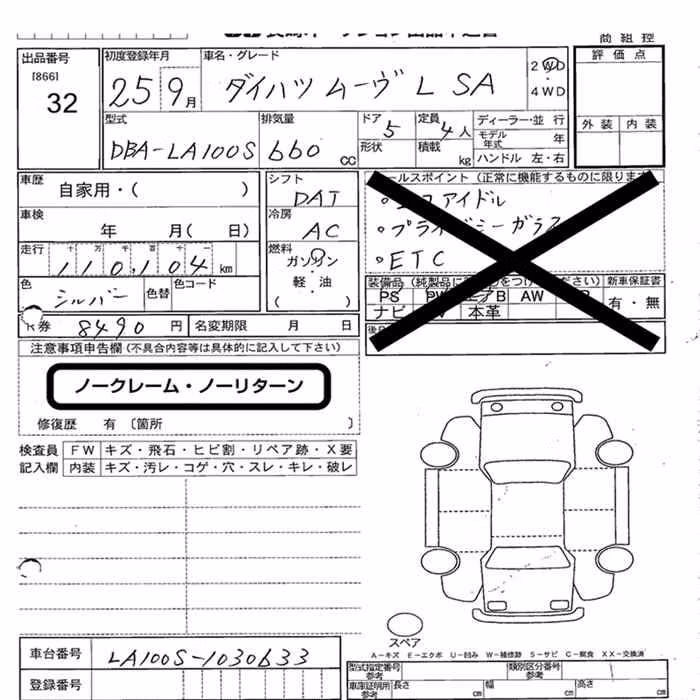 商 組 控
出品番号
[866]
32
初度登録年月
25 9月
車名・グレード
ダイハツ ムーヴ L SA
2WD
・
4WD
評 価 点
外 装 内 装
型式
DBA-LA100S
排気量
660 cc
ドア 5
形状
定員 4人
積載 kg
ディーラー・並 行
モデル年式 年
ハンドル 左・右
車歴
自家用・( )
車検
年 月( 日)
走行
十 万 千 百 十 一
110,104 km
色
シルバー
色替
色コード
シフト
DAT
冷房
AC
燃料
ガソリン
・
軽・油
( )
セールスポイント (正常に機能するものに限ります
・エコアイドル
・プライバシーガラス
・ETC
装備品
新車保証書
PS PW エアB AW
ナビ 本革
有・無
R券 8490 円
名変期限 月 日
注意事項申告欄 (不具合内容等は具体的に記入して下さい)
ノークレーム・ノーリターン
修復歴 有 〔箇所 〕
検査員
記入欄
FW キズ・飛石・ヒビ割・リペア跡・X要
内装 キズ・汚レ・コゲ・穴・スレ・キレ・破レ
スペア
A-キズ E-エクボ U-凹み W-補修跡 S-サビ C-腐食 XX-交換済
車台番号
LA100S-1030633
登録番号
型式指定番号
参考
類別区分番号
参考
車庫証明用
参考
長さ cm
幅 cm
高さ cm